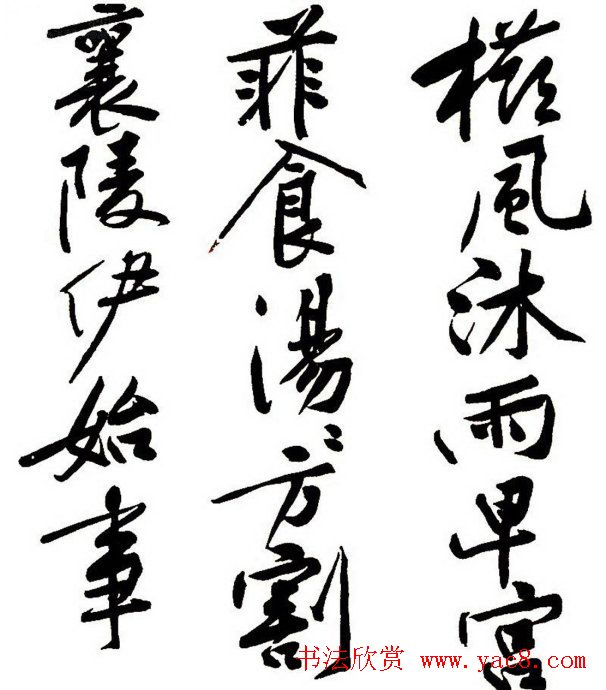 櫛風沐雨卑宮
菲食湯〻方割
襄陵伊始事
书法欣赏 www.yac8.com